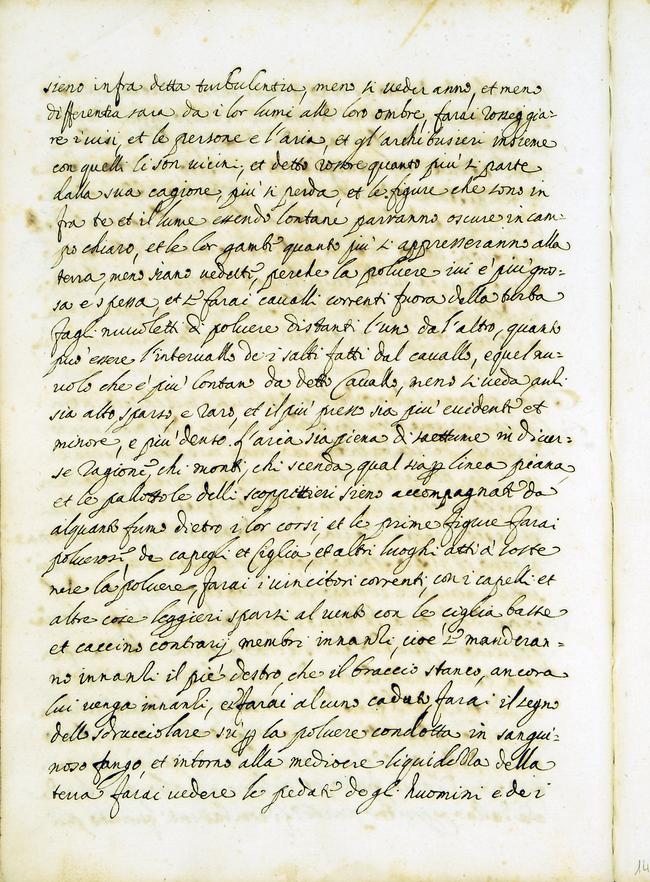 sieno infra detta turbulentia, meno si vederanno, et meno
differentia sara da i lor lumi alle loro ombre, farai rosseggia-
re i visi, et le persone e l'aria, et gl'archibusieri insieme
con quelli li son vicini, et detto rossore quanto più si parte
dalla sua cagione, più si perda, et le figure che sono in
fra te et il lume essendo lontane parranno oscure in cam-
po chiaro, et le lor gambe quanto più s'appresseranno alla
terra, meno siano vedette, perche la polvere ivi è più gros-
sa e spessa, et se farai cavalli correnti fuora della turba
fagli nuvoletti di polvere distanti l'uno dal'altro, quanto
può essere l'intervallo de i salti fatti dal cavallo, e quel nu-
volo che è più lontano da detto Cavallo, meno si veda anzi
sia alto, sparso, e raro, et il più presso sia più evidente et
minore, e più denso. l'aria sia piena di saettume in diver-
se ragione, chi monti, chi scenda, qual sia ꝑ linea piana,
et le pallottole delli scoppittieri sieno accompagnate da
alquanto fumo dietro i lor corsi, et le prime figure farai
polverose, de capegli et Ciglia, et altri luoghi atti à soste
nere la polvere, farai i vincitori correnti, con i capelli et
altre cose leggieri sparsi al vento con le ciglia basse
et caccino contrarij membri innanti, cioè se manderan-
no innanti il piè destro, che il braccio stanco, ancora
lui venga innanti, et farai alcuno caduto, farai il segno
dello sdrucciolare sù ꝑ la polvere condotta in sangui-
noso fango, et intorno alla mediocre liquidezza della
terra farai vedere le pedate degli huomini e de i
14